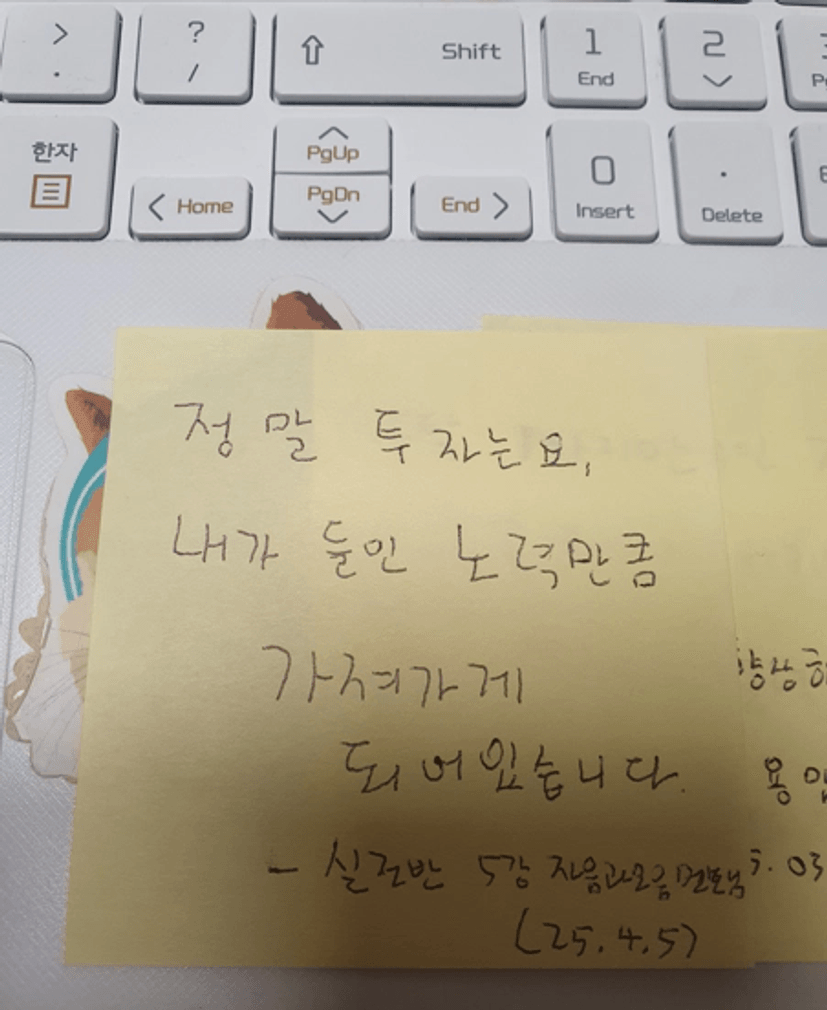 >
.
?
/
⇧ Shift
1
End
2
한자
PgUp
0
Insert
.
Delete
< Home
PgDn
End >
정말 투자는요,
내가 들인 노력만큼
가져가게
되어있습니다.
- 실전반 5강 자음과모음 멘토님
(25.4.5)
항상
용맘
5.03